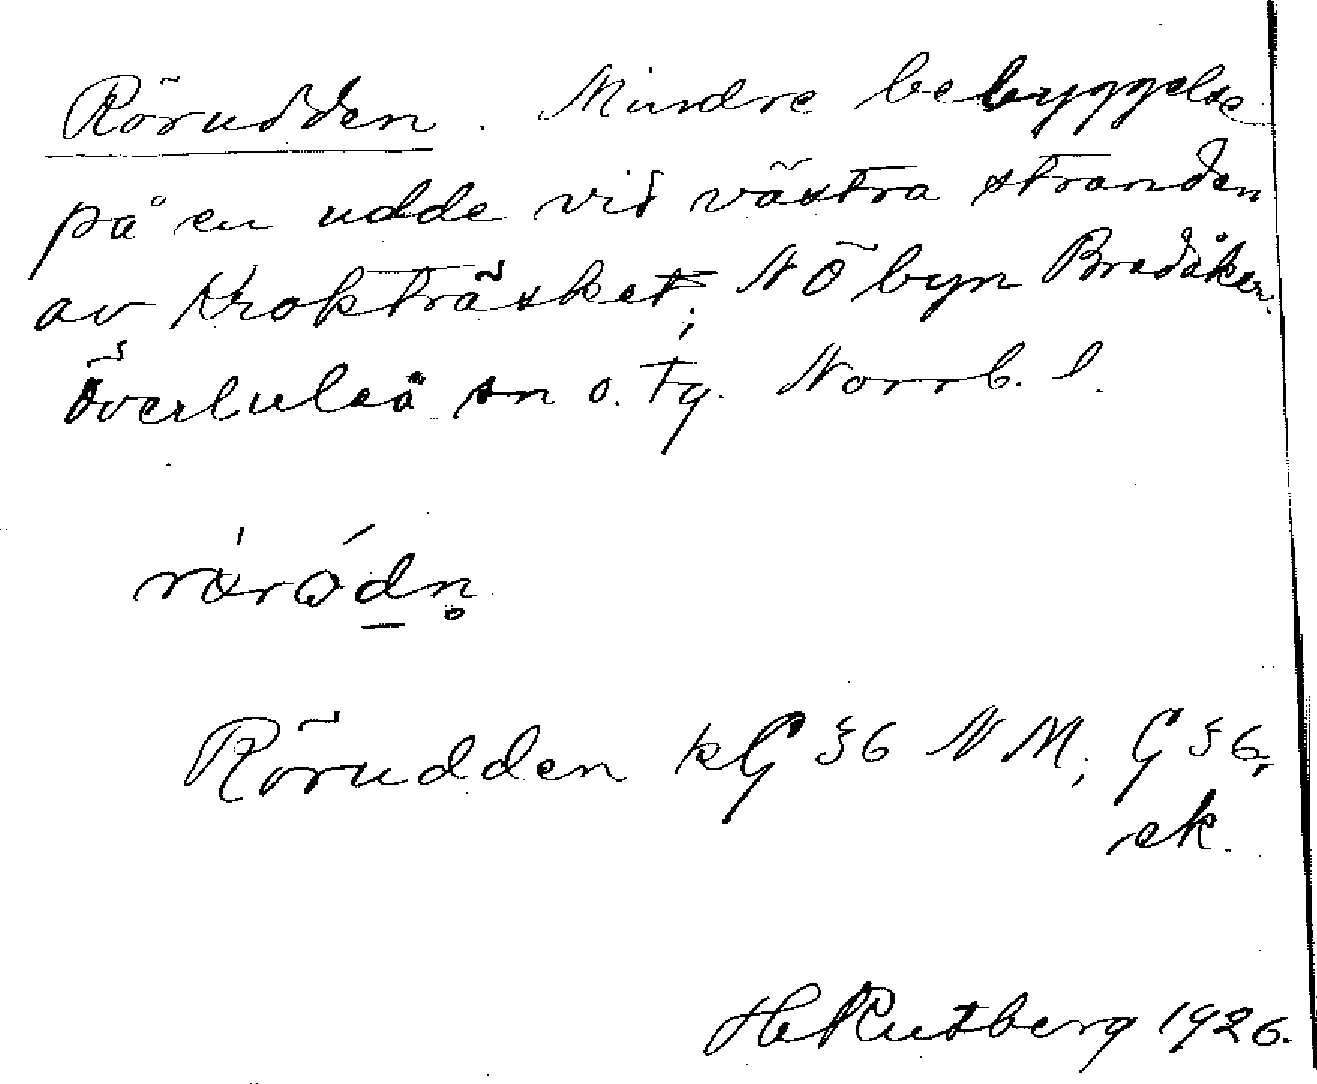 Rörudden. Mindre bebyggelse
på en udde vid västra stranden
av Krokträsket, NÖ byn Bredåker.
Överluleå sn o. tg. Norrb. l.
Rörudden kG §6 NM; G §6,
ek.
H. Rutberg 1926.